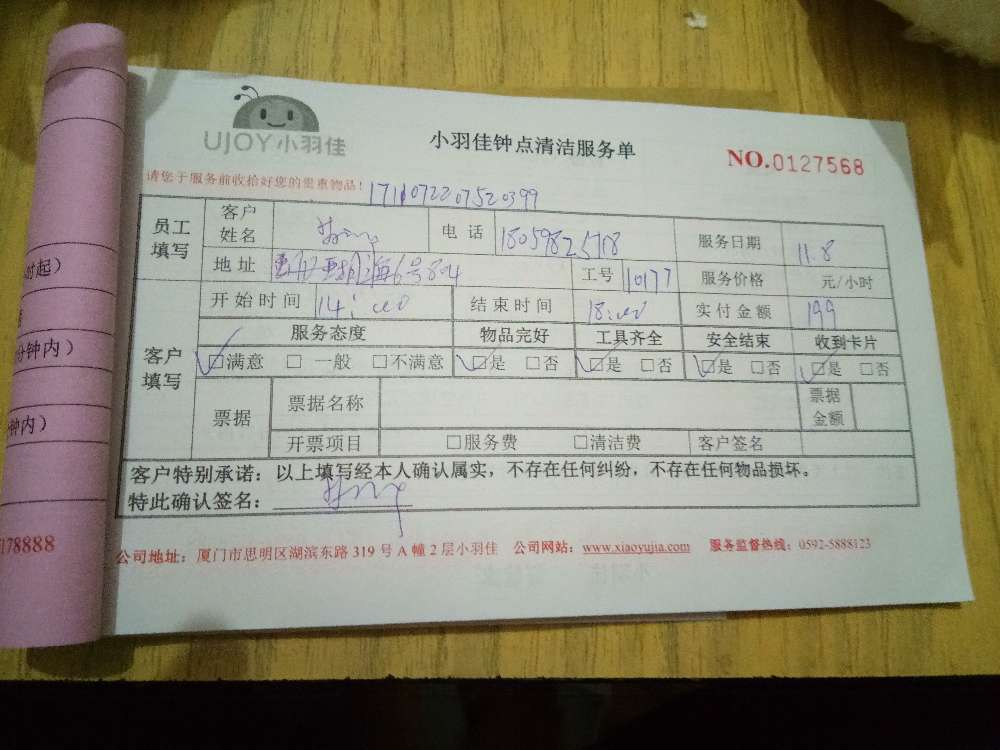 UJOY小羽佳
小羽佳钟点清洁服务单
NO.0127568
请您于服务前收拾好您的贵重物品！
员工填写 客户姓名 电话 服务日期 11.8
地址 6号804 工号 10177 服务价格 元/小时
开始时间 14:00 结束时间 18:00 实付金额 199
客户填写 服务态度 物品完好 工具齐全 安全结束 收到卡片
□满意 □一般 □不满意 □是 □否 □是 □否 □是 □否 □是 □否
票据 票据名称 票据金额
开票项目 □服务费 □清洁费 客户签名
客户特别承诺：以上填写经本人确认属实，不存在任何纠纷，不存在任何物品损坏。
特此确认签名：
公司地址：厦门市思明区湖滨东路 319 号 A 幢 2 层小羽佳 公司网站：www.xiaoyujia.com 服务监督热线：0592-5888123
时起）
分钟内）
钟内）
178888